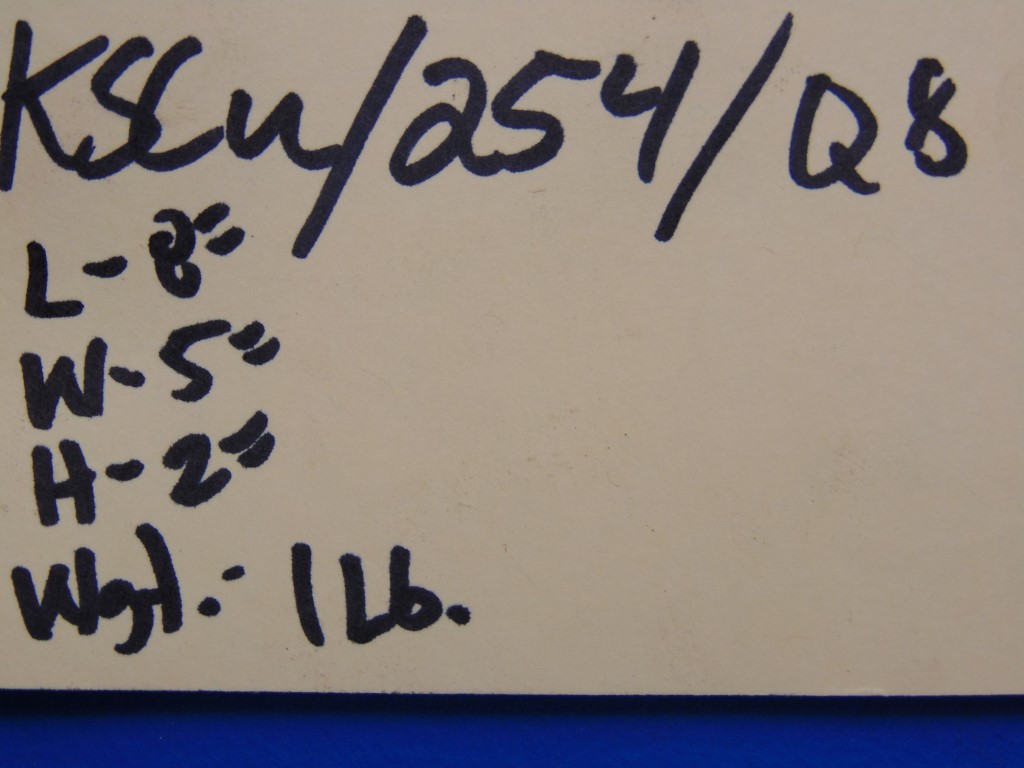 KSCu/254/Q8
L-8"
W-5"
H-2"
Wgt: 1 Lb.